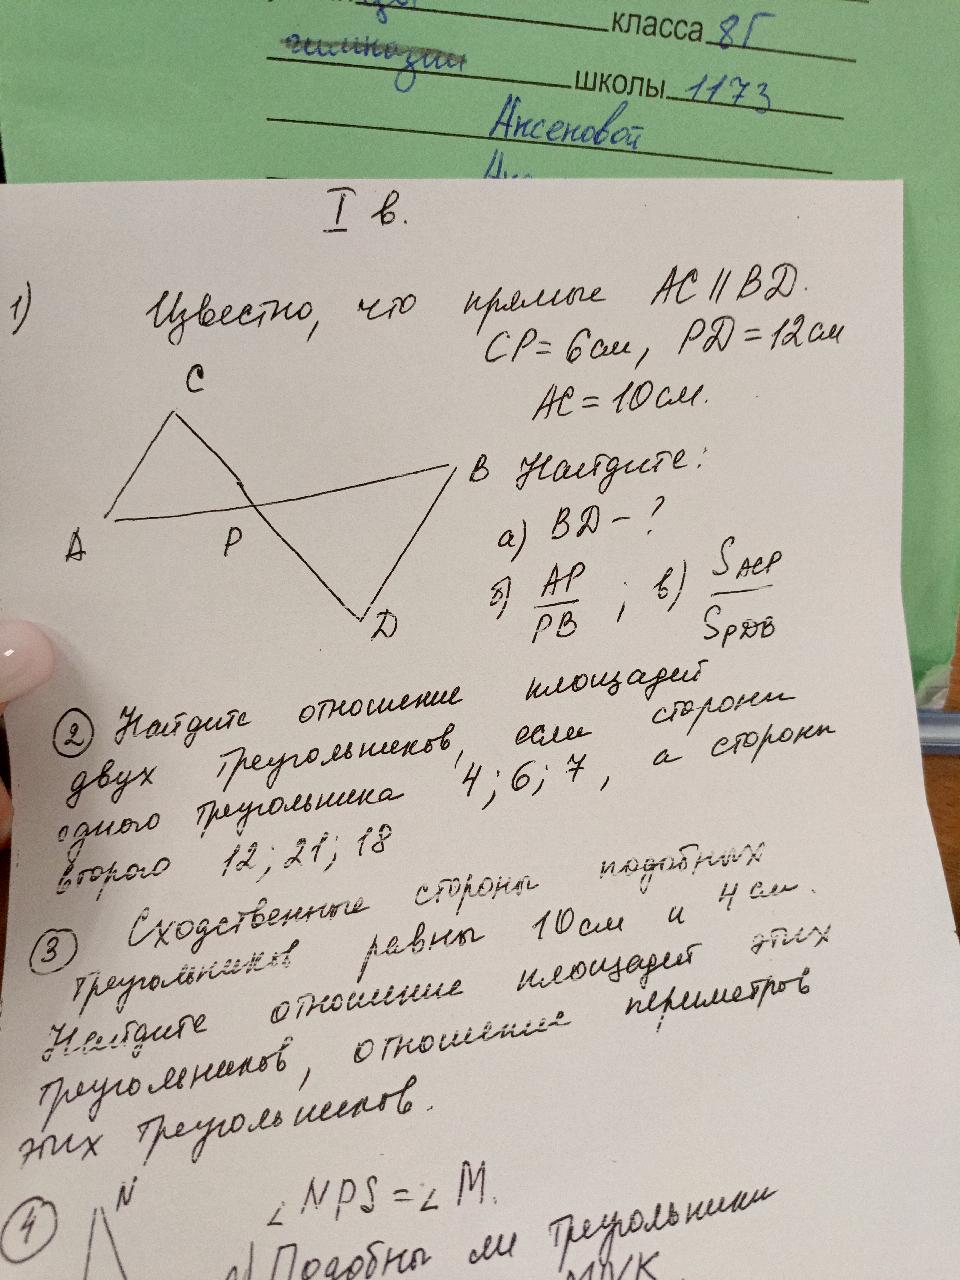 класса 8Г
гимназии
школы 1173
Аксеновой
I в.
1) Известно, что прямые AC || BD.
CP = 6 см, PD = 12 см
AC = 10 см.
C
B
A
P
D
Найдите:
а) BD - ?
б) AP/PB ; в) S ACP / S PDB
2 Найдите отношение площадей
двух треугольников, если стороны
одного треугольника 4; 6; 7, а стороны
второго 12; 21; 18
3 Сходственные стороны подобных
треугольников равны 10 см и 4 см.
Найдите отношение площадей этих
треугольников, отношение периметров
этих треугольников.
4 N ∠ NPS = ∠ M.
Подобны ли треугольники